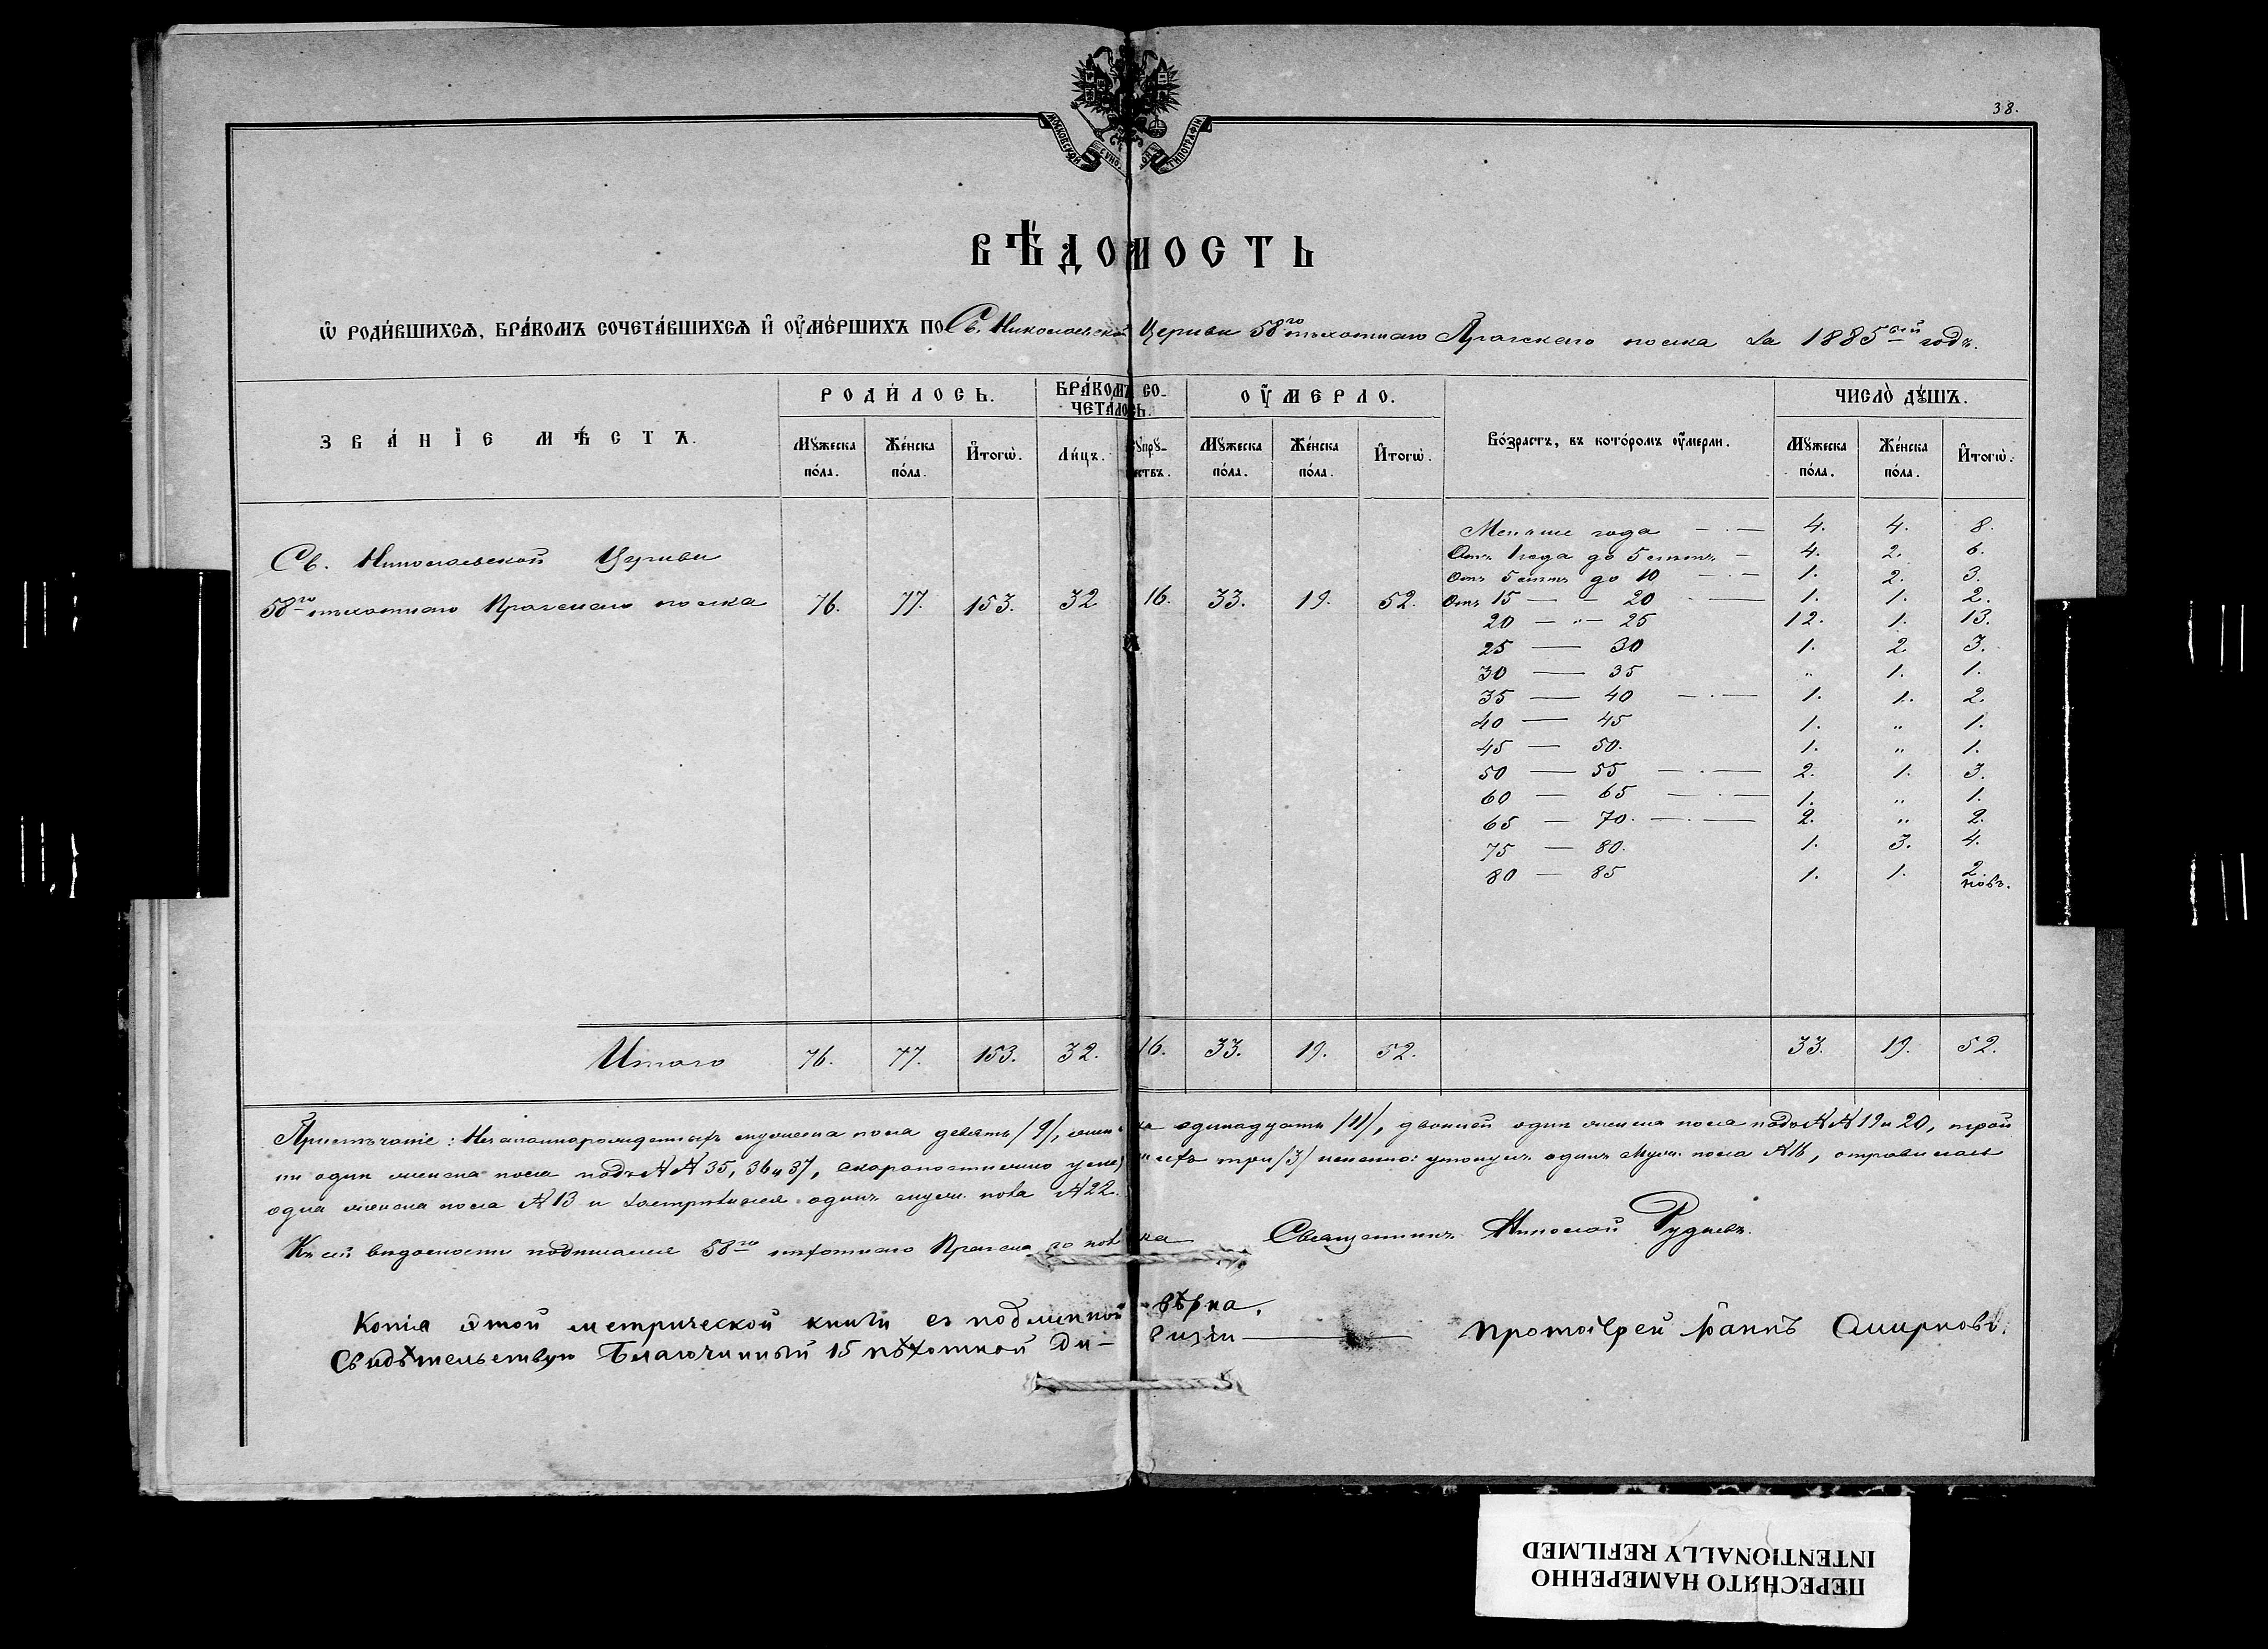 38.
МОСКОВСКОЙ СѴНОД. ТИПОГРАФІИ
ВѢДОМОСТЬ
Ѡ РОДИ́ВШИХСѦ, БРА́КОМЪ СОЧЕТА́ВШИХСѦ И҆ ОУ҆МЕ́РШИХЪ ПО Св. Николаевской Церкви 58го пѣхотнаго Прагскаго полка за 1885ый годъ.
ЗВА́НІЕ МѢ́СТЪ. РОДИ́ЛОСЬ. БРА́КОМЪ СО-ЧЕТАЛОСЬ. ОУ҆́МЕРЛО. Во́зрастъ, въ кото́ромъ оу҆́мерли. ЧИСЛО̀ ДꙊ́ШЪ.
Мꙋ́жеска по́ла. Же́нска по́ла. И҆тогѡ̀. Ли́цъ. Сꙋпрꙋ́-жествъ. Мꙋ́жеска по́ла. Же́нска по́ла. И҆тогѡ̀. Мꙋ́жеска по́ла. Же́нска по́ла. И҆тогѡ̀.
Св. Николаевской Церкви
58го пѣхотнаго Прагскаго полка 76. 77. 153. 32 16. 33. 19. 52.
Меньше года — · — 4. 4. 8.
Отъ 1 года до 5 лѣтъ — 4. 2. 6.
Отъ 5 лѣтъ до 10 — · — 1. 2. 3.
Отъ 15 — — 20 — 1. 1. 2.
20 — " — 25 12. 1. 13.
25 — 30 1. 2. 3.
30 — 35 " 1. 1.
35 — 40 — · — 1. 1. 2.
40 — 45 1. " 1.
45 — 50. 1. " 1.
50 — 55 — · — 2. 1. 3.
60 — 65 — · — 1. " 1.
65 — 70. — · — 2. " 2.
75 — 80. 1. 3. 4.
80 — 85 1. 1. 2.
Итого 76. 77. 153. 32. 16. 33. 19. 52. 33. 19. 52.
Примѣчаніе: Незаконнорожденныхъ мужеска пола девять /9/, женска одинадцать /11/, двойней одни женска пола подъ №№ 19 и 20, трой
ни одни женска пола подъ №№ 35, 36 и 37, скоропостижно умершихъ три /3/ именно: утонулъ одинъ муж. пола №16, отравилась
одна женска пола № 13 и застрѣлился одинъ муж. пола № 22.
Къ сей вѣдомости подписался 58го пѣхотнаго Прагскаго полка Священникъ Николай Рудневъ.
Копія этой метрической книги съ подлинной вѣрна.
Свидѣтельствую Благочинный 15 пѣхотной Ди-визіи — Протоіерей Іоаннъ Смирновъ.
ПЕРЕСНЯТО НАМЕРЕННО
INTENTIONALLY REFILMED